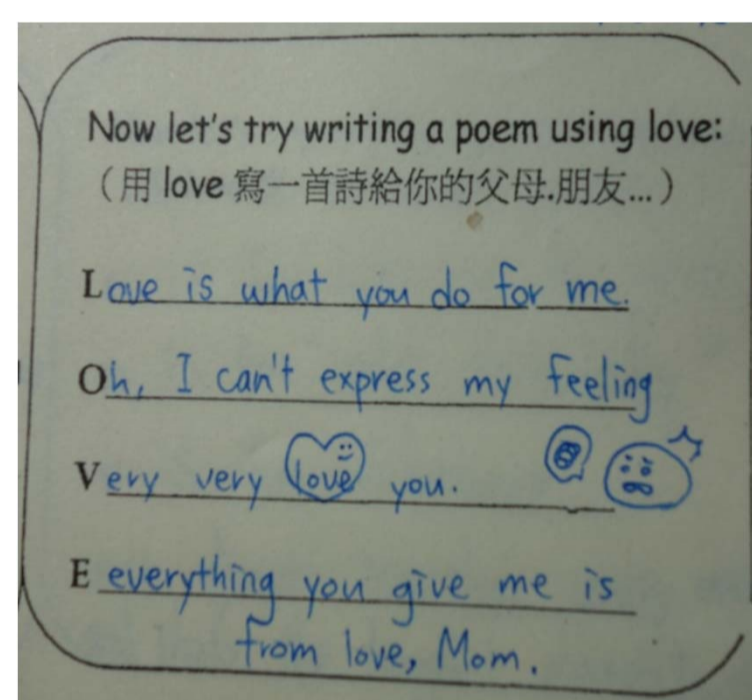 Now let's try writing a poem using love:
（用 love 寫一首詩給你的父母.朋友...）
Love is what you do for me.
Oh, I can't express my feeling
Very very love you.
E everything you give me is
from love, Mom.